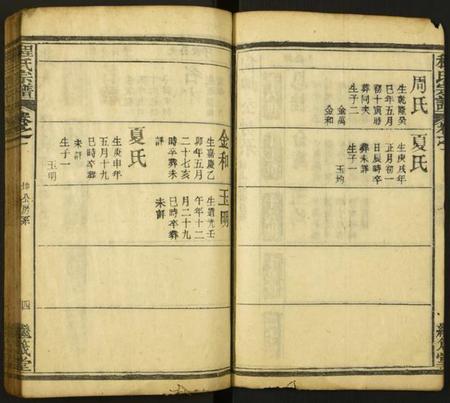 周氏
生乾隆癸
巳年五月
初十寅時
葬同夾
生子二
金萬
金和
夏氏
生庚戌年
正月初一
日辰時卒
葬未詳
生子一
玉均
金和
生嘉慶乙
卯年五月
二十七亥
時卒葬未
詳
夏氏
生庚申年
五月十九
巳時卒葬
未詳
生子一
玉明
玉明
生道光壬
午年十二
月二十九
巳時卒葬
未詳
程氏宗譜
卷之
公房系
四
繼箴堂